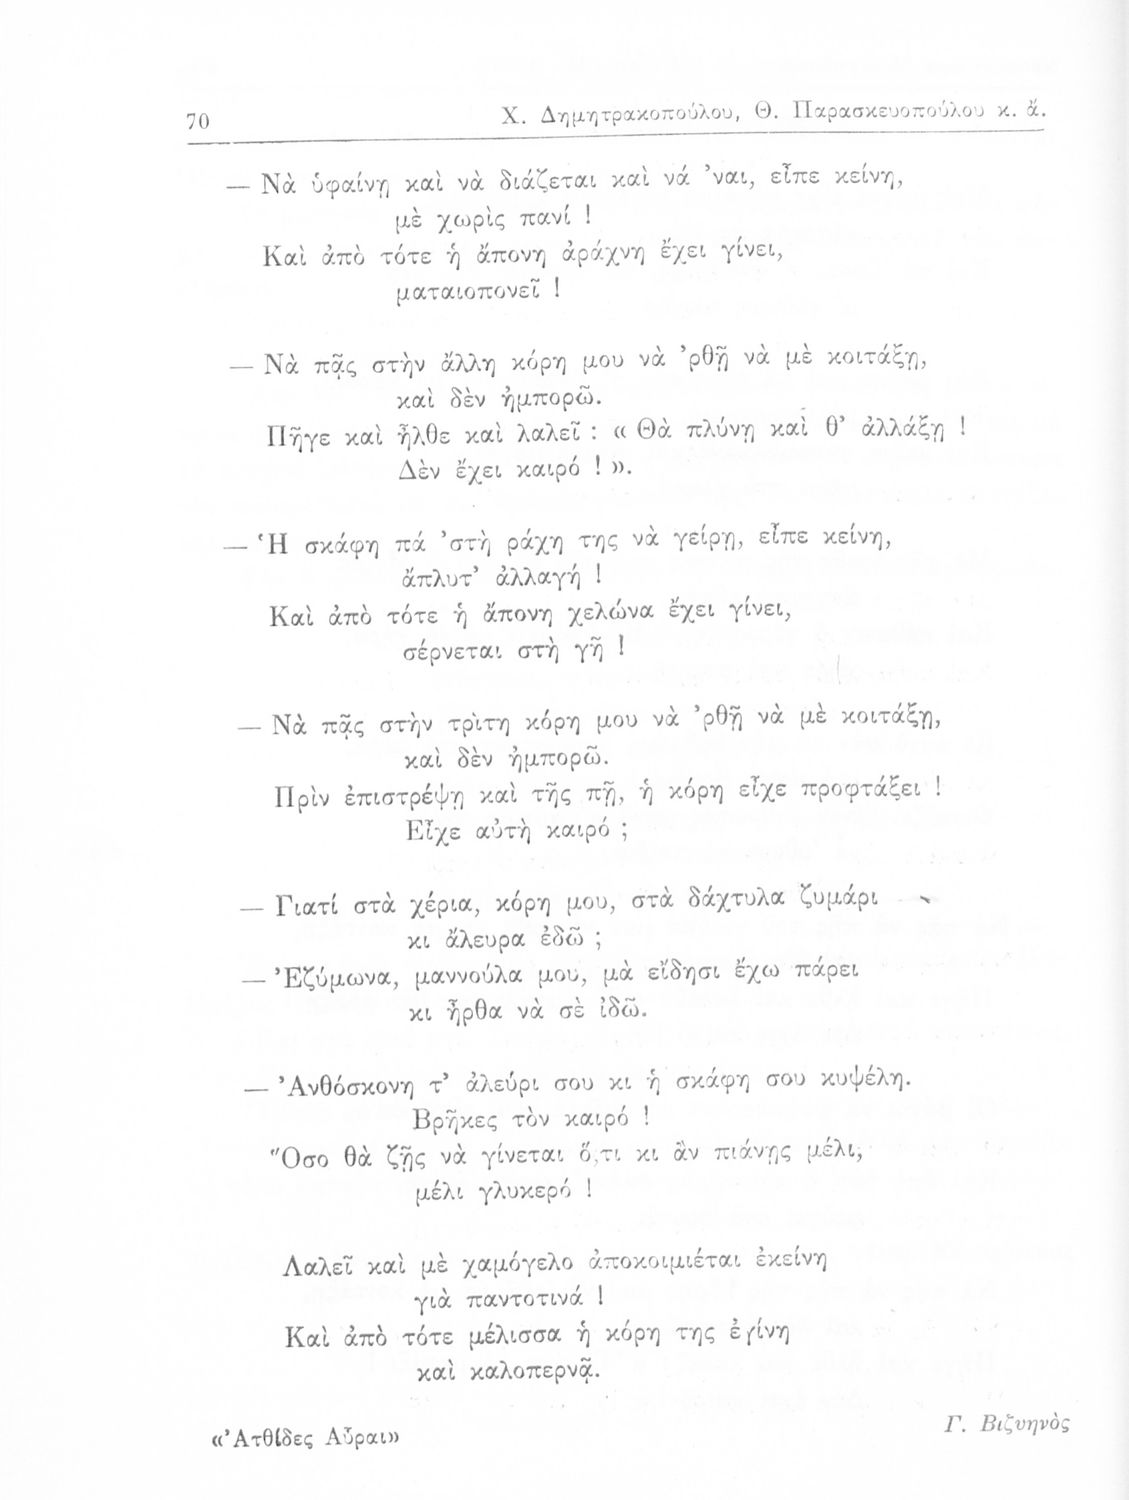 70
Χ. Δημητρακοπούλου, Θ. Παρασκευοπούλου κ. ἄ.
— Νὰ ὑφαίνῃ καὶ νὰ διάζεται καὶ νά ᾿ναι, εἶπε κείνη,
μὲ χωρὶς πανί !
Καὶ ἀπὸ τότε ἡ ἄπονη ἀράχνη ἔχει γίνει,
ματαιοπονεῖ !
— Νὰ πᾷς στὴν ἄλλη κόρη μου νὰ ᾿ρθῇ νὰ μὲ κοιτάξῃ,
καὶ δὲν ἠμπορῶ.
Πῆγε καὶ ἦλθε καὶ λαλεῖ : « Θὰ πλύνῃ καὶ θ᾿ ἀλλάξῃ !
Δὲν ἔχει καιρό ! ».
— Ἡ σκάφη πά ᾿στὴ ράχη της νὰ γείρῃ, εἶπε κείνη,
ἄπλυτ᾿ ἀλλαγή !
Καὶ ἀπὸ τότε ἡ ἄπονη χελώνα ἔχει γίνει,
σέρνεται στὴ γῆ !
— Νὰ πᾷς στὴν τρὶτη κόρη μου νὰ ᾿ρθῇ νὰ μὲ κοιτάξῃ,
καὶ δὲν ἠμπορῶ.
Πρὶν ἐπιστρέψῃ καὶ τῆς πῇ, ἡ κόρη εἶχε προφτάξει !
Εἶχε αὐτὴ καιρό ;
— Γιατί στὰ χέρια, κόρη μου, στὰ δάχτυλα ζυμάρι
κι ἄλευρα ἐδῶ ;
— Ἐζύμωνα, μαννούλα μου, μὰ εἴδησι ἔχω πάρει
κι ἦρθα νὰ σὲ ἰδῶ.
— Ἀνθόσκονη τ᾿ ἀλεύρι σου κι ἡ σκάφη σου κυψέλη.
Βρῆκες τὸν καιρό !
Ὅσο θὰ ζῇς νὰ γίνεται ὅ,τι κι ἂν πιάνῃς μέλι,
μέλι γλυκερό !
Λαλεῖ καὶ μὲ χαμόγελο ἀποκοιμιέται ἐκείνη
γιὰ παντοτινά !
Καὶ ἀπὸ τότε μέλισσα ἡ κόρη της ἐγίνη
καὶ καλοπερνᾷ.
«Ἀτθίδες Αὖραι»
Γ. Βιζυηνὸς